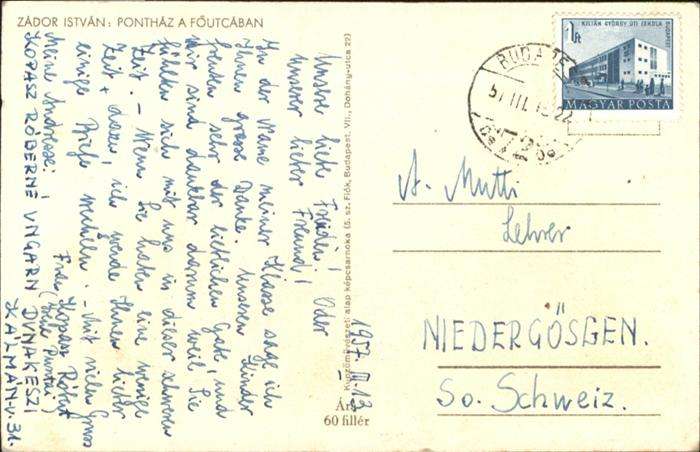 ZÁDOR ISTVÁN: PONTHÁZ A FŐUTCÁBAN
1957. III. 13
Unsere liebe Freiden! Oder
unserer lieber Freund!
In der Name meiner Klasse sage ich
Ihnen grosse Danke. Unseren Kinder
freuden sehr der lieblichen Gabe, und
wir sind dankbar darum weil Sie
fühlen sich mit uns in dieser schweren
Zeit. - Wenn Sie haben eine wenige
Zeit dazu, ich werde Ihnen lieber
einige Briefe
- Mit vielen Gruss
Frau Kopasz Róbert
Meine Andresse:
KOPASZ RÓBERNÉ UNGARN DUNAKESZI
KÁLMÁN-u. 31.
Képzőművészeti alap képcsarnoka (5. sz. Fiók, Budapest, VII., Dohány-utca 22)
Ára
60 fillér
KILIÁN GYÖRGY ÚTI ISKOLA
BUDAPEST
1 Ft
MAGYAR POSTA
BUDAPE
57 III. 1
A. Mutti
Lehrer
NIEDERGÖSGEN.
So. Schweiz.